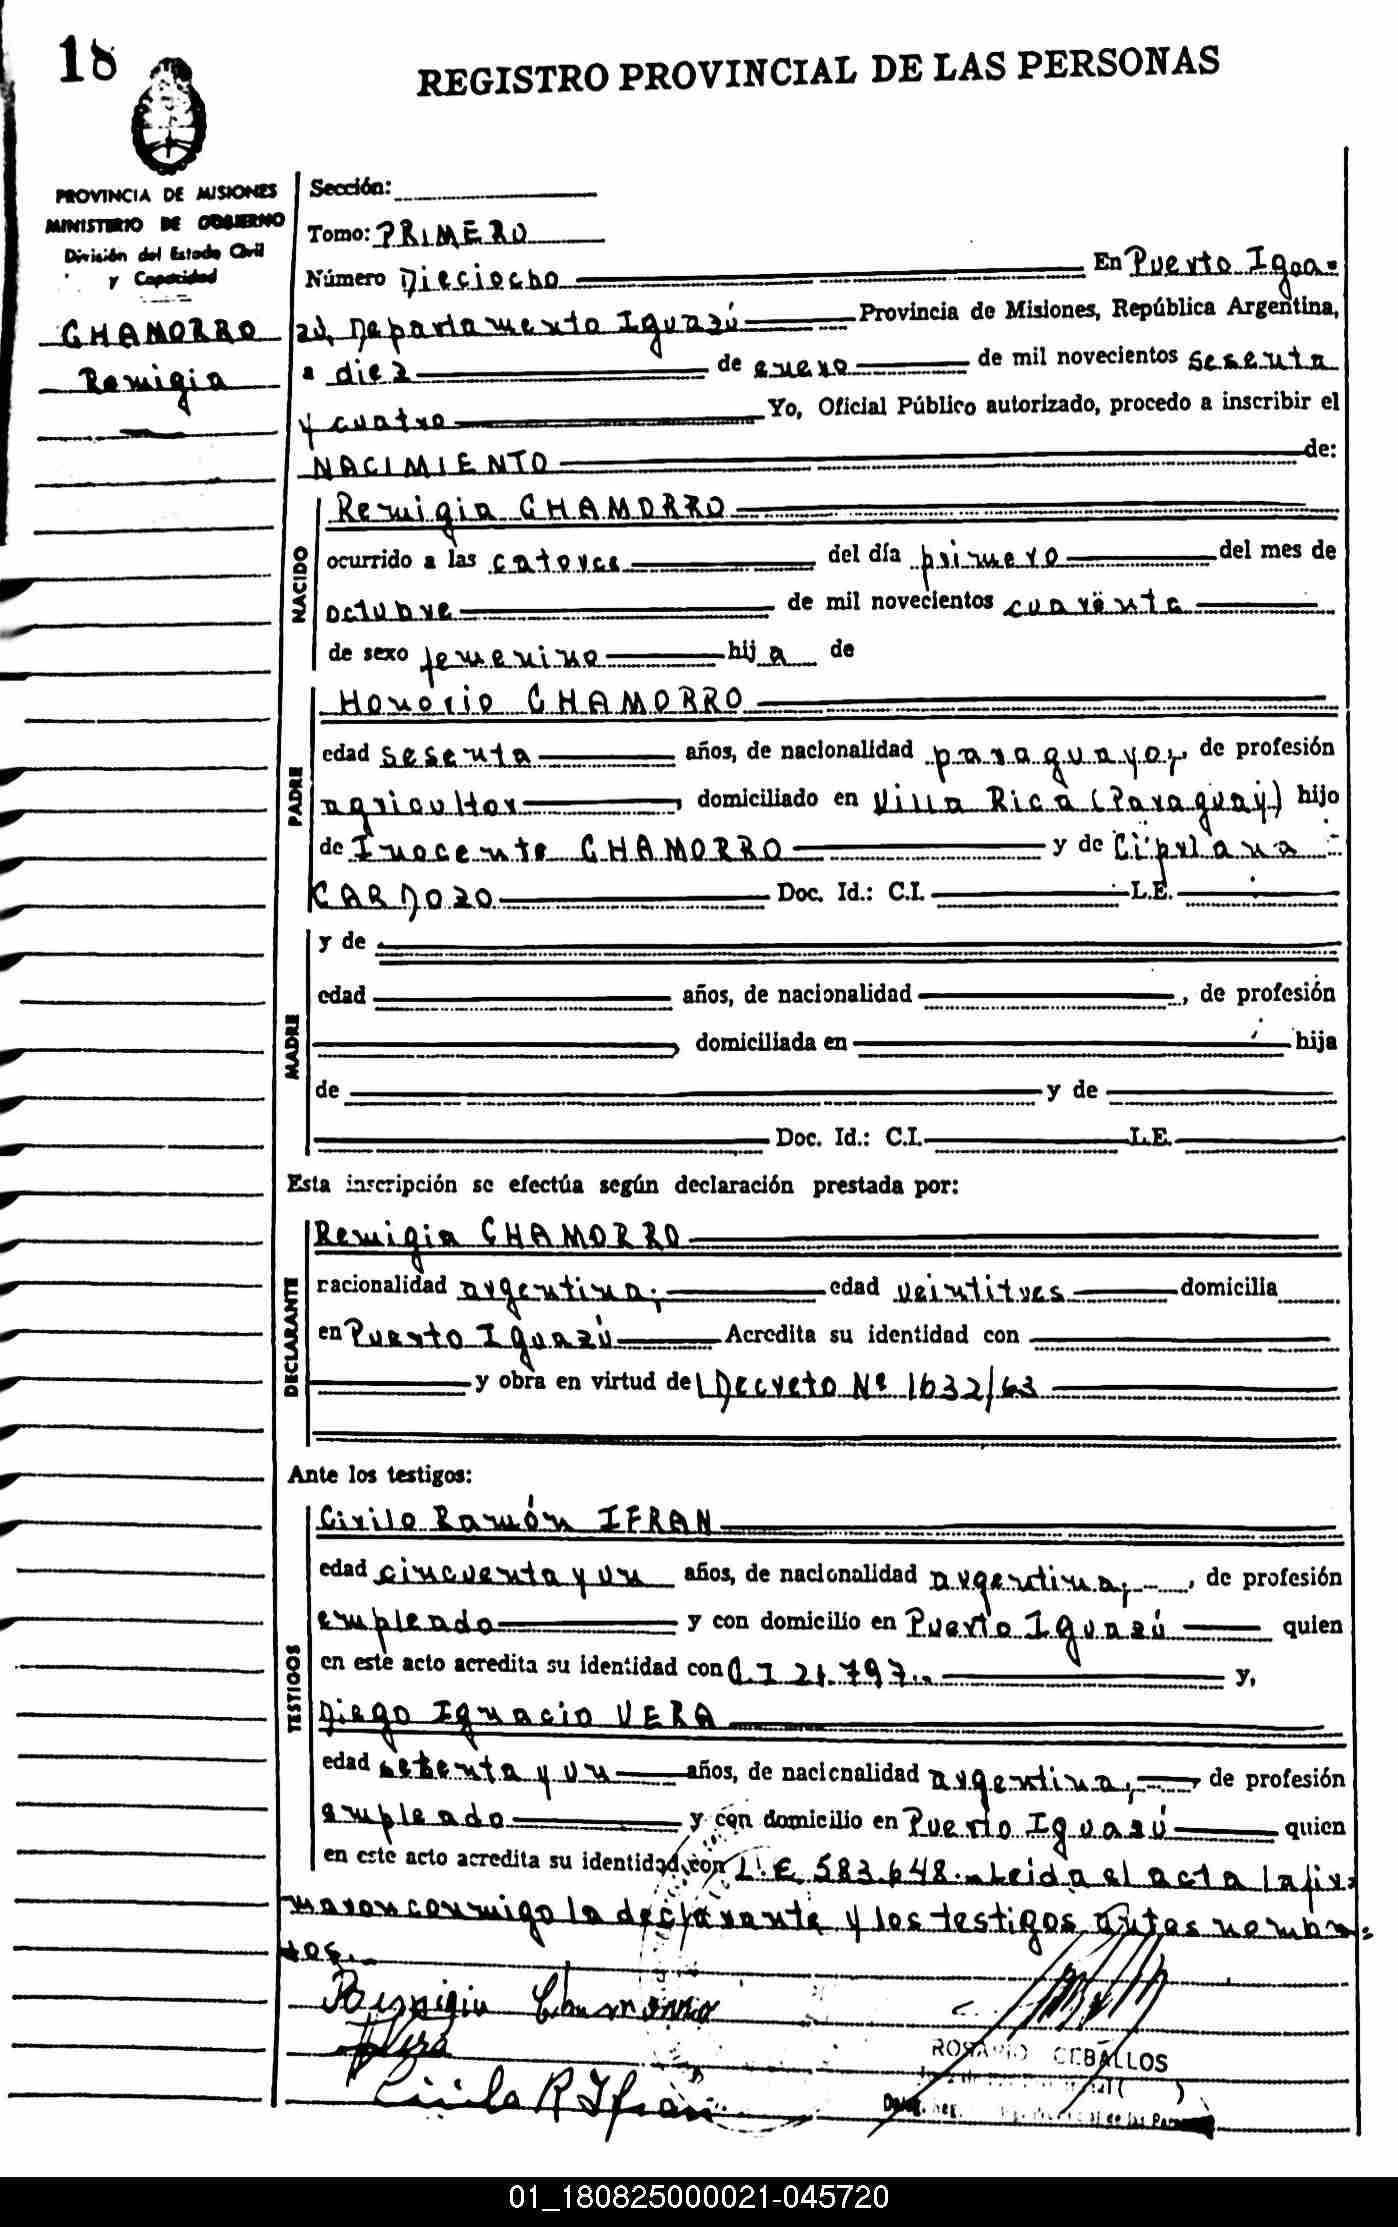 18
REGISTRO PROVINCIAL DE LAS PERSONAS
PROVINCIA DE MISIONES
MINISTERIO DE GOBIERNO
División del Estado Civil
y Capacidad
CHAMORRO
Remigia
Sección:
Tomo: PRIMERO
Número Dieciocho En Puerto Igua=
zú, Departamento Iguazú Provincia de Misiones, República Argentina,
a diez de enero de mil novecientos sesenta
y cuatro Yo, Oficial Público autorizado, procedo a inscribir el
NACIMIENTO de:
NACIDO
Remigia CHAMORRO
ocurrido a las catorce del día primero del mes de
octubre de mil novecientos cuarenta
de sexo femenino hija de
PADRE
Honorio CHAMORRO
edad sesenta años, de nacionalidad paraguayo, de profesión
agricultor, domiciliado en Villa Rica (Paraguay) hijo
de Inocente CHAMORRO y de Cipriana
CARDOZO Doc. Id.: C.I. L.E.
MADRE
y de
edad años, de nacionalidad , de profesión
, domiciliada en hija
de y de
Doc. Id.: C.I. L.E.
Esta inscripción se efectúa según declaración prestada por:
DECLARANTE
Remigia CHAMORRO
nacionalidad argentina, edad veintitres domicilia
en Puerto Iguazú Acredita su identidad con
y obra en virtud del Decreto Nº 1632/63
Ante los testigos:
TESTIGOS
Cirilo Ramón IFRAN
edad cincuenta y un años, de nacionalidad argentina, , de profesión
empleado y con domicilio en Puerto Iguazú quien
en este acto acredita su identidad con C.I 21.797.. y,
Diego Ignacio VERA
edad setenta y un años, de nacionalidad argentina, , de profesión
empleado y con domicilio en Puerto Iguazú quien
en este acto acredita su identidad con L.E 583.648.= Leida el acta la fir=
maron conmigo la declarante y los testigos antes nombra=
dos.
Remigia Chamorro
Vera
ROSARIO CEBALLOS
Cirilo R Ifran
01_180825000021-045720